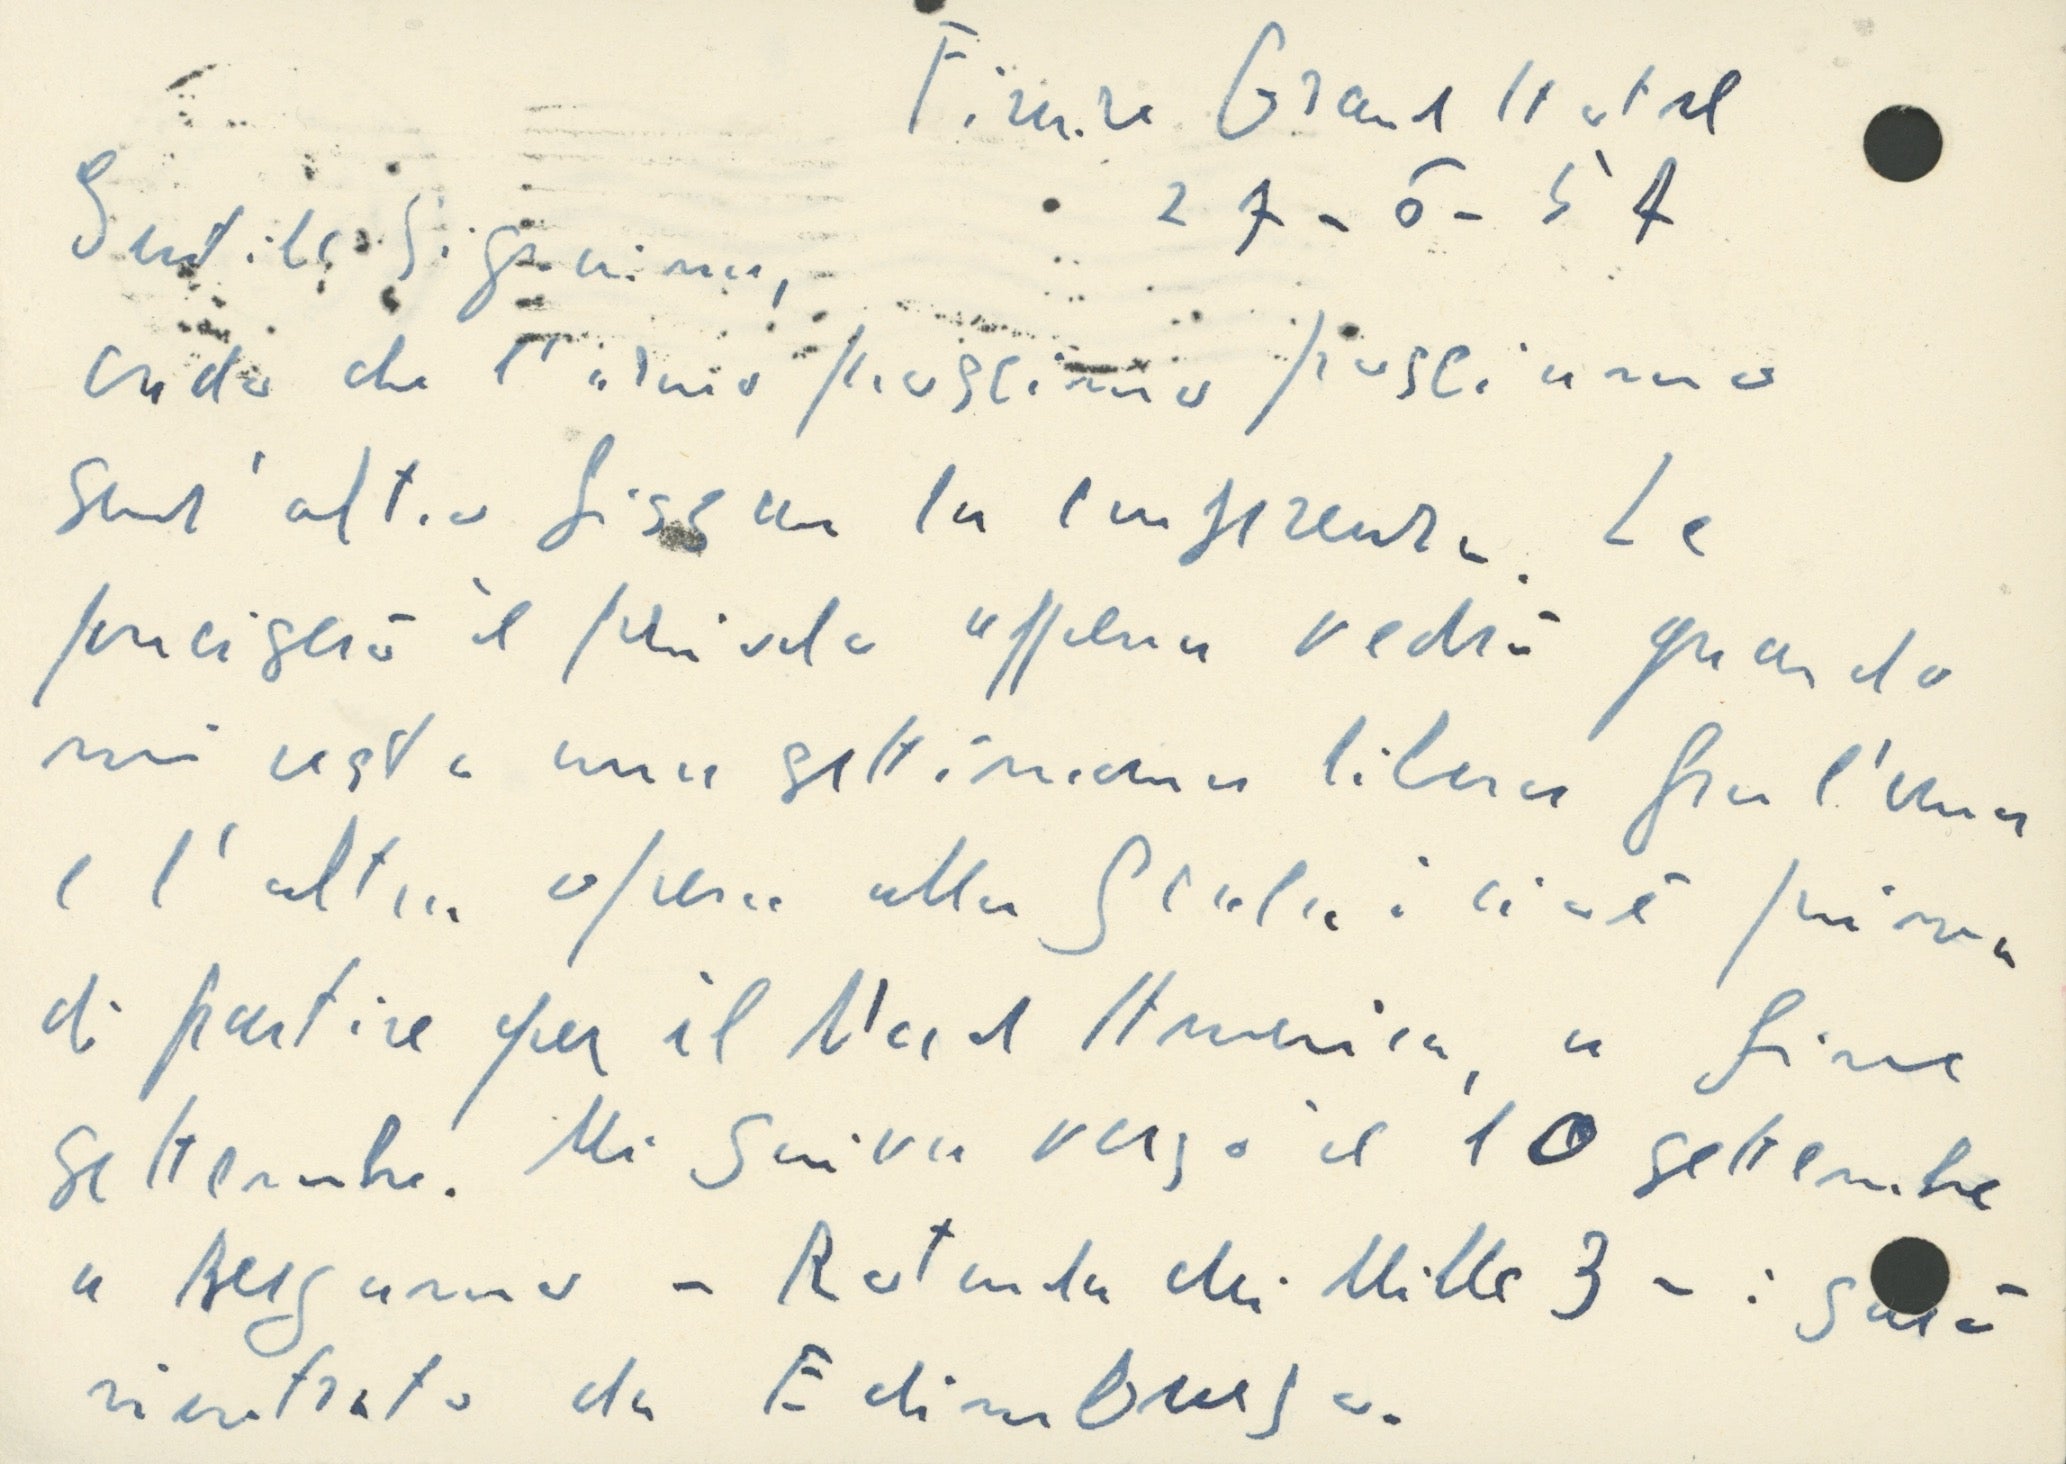 Firenze Grand Hotel
27-6-57
Gentile Signorina,
credo che l'anno prossimo possiamo
senz'altro fissar la conferenza. Le
preciserò il periodo appena vedrò quando
mi resta una settimana libera fra l'una
e l'altra opera alla Scala: cioè prima
di partire per il Nord America, a fine
settembre. Mi scriva verso il 10 settembre
a Bergamo - Rotonda dei Mille 3 - : sarò
rientrato da Edimburgo.